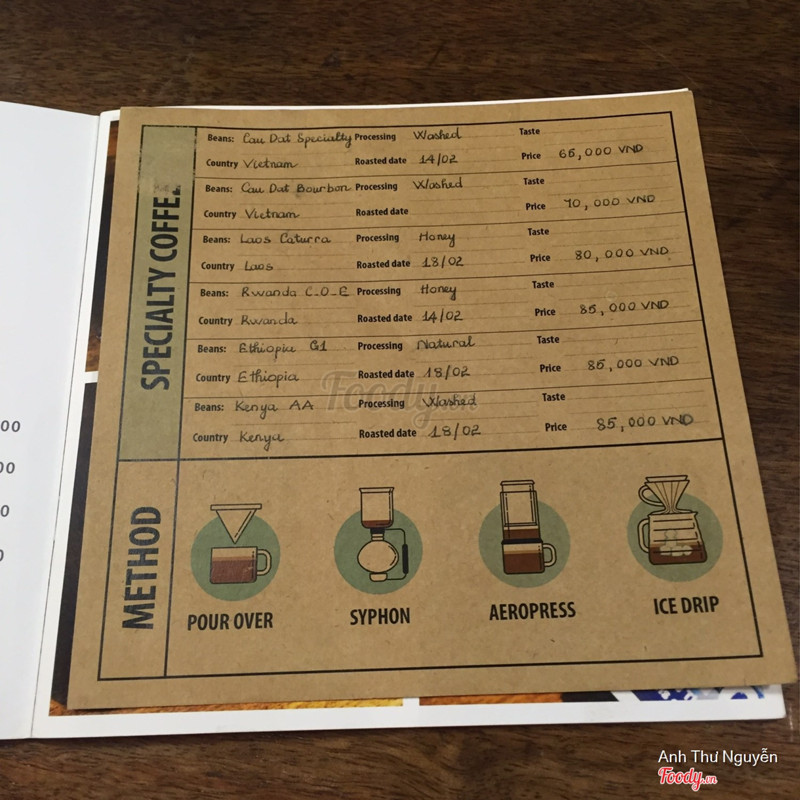 SPECIALTY COFFEE
Beans: Cau Dat Specialty Processing Washed Taste
Country Vietnam Roasted date 14/02 Price 65,000 VND
Beans: Cau Dat Bourbon Processing Washed Taste
Country Vietnam Roasted date Price 70,000 VND
Beans: Laos Caturra Processing Honey Taste
Country Laos Roasted date 18/02 Price 80,000 VND
Beans: Rwanda C_O_E Processing Honey Taste
Country Rwanda Roasted date 14/02 Price 85,000 VND
Beans: Ethiopia G1 Processing Natural Taste
Country Ethiopia Roasted date 18/02 Price 85,000 VND
Beans: Kenya AA Processing Washed Taste
Country Kenya Roasted date 18/02 Price 85,000 VND
Foody.vn
METHOD
POUR OVER SYPHON AEROPRESS ICE DRIP
00
00
0
0
Anh Thư Nguyễn
Foody.vn